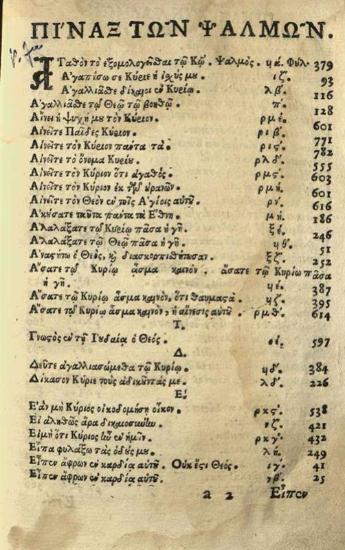 ΠΙΝΑΞ ΤΩΝ ΨΑΛΜΩΝ.
ΑΓαθὸν τὸ ἐξομολογεῖσθαι τῷ Κῷ. Ψαλμὸς ϟά. Φύλ. 379
Ἀγαπήσω σε Κύριε ἡ ἰχύς μυ ιζ΄. 93
Ἀγαλλιᾶσθε δίκαιοι ἐν Κυρίῳ. λβ΄. 116
Ἀγαλλιᾶσθε τῷ Θεῷ τῷ βοηθῷ π΄. 128
Αἴνει ἡ ψυχή μυ τὸν Κύριον. ρμέ. 601
Αἰνεῖτε Παῖδες Κύριον. ριβ΄. 771
Αἰνεῖτε τὸν Κύριον πάντα τὰ ρις΄. 782
Αἰνεῖτε τὸ ὄνομα Κυρίυ. ρλδ΄. 555
Αἰνεῖτε τὸν Κύριον ὅτι ἀγαθὸς ρμς΄. 603
Αἰνεῖτε τὸν Κύριον ἐκ τῶν υρανῶν ρμή. 601
Αἰνεῖτε τὸν Θεὸν ἐν τοῖς Ἁγίοις αυτῦ. ρν΄. 616
Ἀκύσατε ταῦτα πάντα τὰ Ἔθνη μή. 186
Ἀλαλάξατε τῷ Κυρίῳ πᾶσα ἡ γῆ. ξέ. 246
Ἀλαλάξατε τῷ Θεῷ πᾶσα ἡ γῆ ϟθ΄. 51
Ἀναστήτω ὁ Θεὸς, κỳ διασκορπισθήτωσαν. ξζ΄. 252
Ἄσατε τῷ Κυρίῳ ᾆσμα καινόν. ᾄσατε τῷ Κυρίῳ πᾶσα
ἡ γῆ. ϟέ. 387
Ἄσατε τῷ Κυρίῳ ᾆσμα καινὸν, ὅτι θαυμαστὰ. ϟζ΄. 395
Ἄσατε τῷ Κυρίῳ ᾆσμα καινὸν, ἡ αἴνεσις αυτῦ. ρμθ΄. 614
Γ.
Γνωστὸς ἐν τῇ Ἰυδαίᾳ ὁ Θεός. οέ. 597
Δ.
Δεῦτε ἀγαλλιασώμεθα τῷ Κυρίῳ. ϟδ΄. 384
Δίκασον Κύριε τοὺς ἀδικῦντάς με. λδ΄. 226
Ε.
Ἐὰν μὴ Κύριος οἰκοδομήσῃ οἶκον. ρκς΄. 538
Εἰ ἀληθῶς ἄρα δικαιοσύνην νζ΄. 421
Εἰ μὴ ὅτι Κύριος ἦν ἐν ἡμῖν. ρκγ΄. 432
Εἶπα φυλάξω τὰς ὁδύς μυ. λή. 249
Εἶπεν ἄφρων ἐν καρδίᾳ αυτῦ. Οὐκ ἔστι Θεός. ιγ΄. 41
Εἶπεν ἄφρων ἐν καρδίᾳ αυτῦ. νβ΄. 25
a 2 Εἶπεν